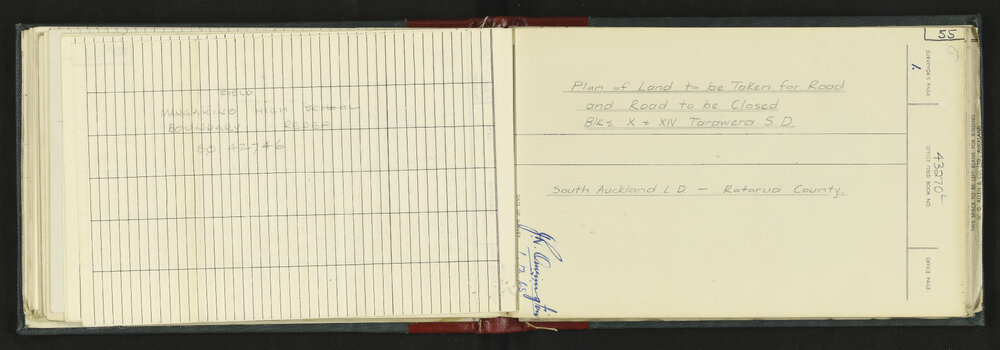 FIELD
MANGAKINO HIGH SCHOOL
BOUNDARY REDEF
SO 42746
55
Plan of Land to be Taken for Road
and Road to be Closed
Blks X & XIV Tarawera S D
South Auckland L D — Rotorua County
DATE OF SURVEY
1.12.65
SURVEYOR'S PAGE
1.
OFFICE FIELD BOOK NO.
OFFICE PAGE:
THIS SPACE TO BE LEFT BLANK FOR BINDING